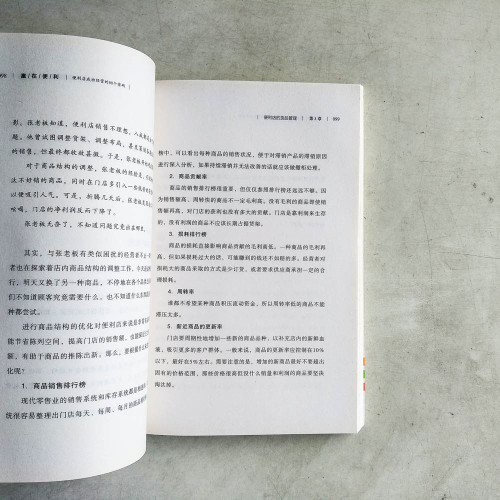 赢/在/便/利
影。张老板知道，便利店销售不理想，
他曾试图调整货架、调整布局、
的销售，但最终都收效甚微。于是，
对于商品结构的调整，张老板
出不好销的商品，同时在门店多引入一些
以便吸引人气。可是，折腾几次后，
唉喝，门店的净利润反而下降了。
张老板无奈了，不知道问题究竟出在哪里。
其实，与张老板有类似困扰的经营者
者也在探索着店内商品结构的调整工作。
行，明天又换了另一种商品，不停地在各个
们不知道顾客究竟需要什么，也不知道
种都尝试。
进行商品结构的优化对便利店来说
能节省陈列空间，提高门店的销售额，
额，有助于商品的推陈出新。那么，
化呢？
1. 商品销售排行榜
现代零售业的销售系统和库存系统
统很容易整理出门店每天、每周、每月的商品
便利店的商品管理 第3章 059
榜中，可以看出每种商品的销售状况，便于对滞销产品的滞销原因
进行深入分析，如果持续滞销并无法改善的话就应该撤柜处理。
2. 商品贡献率
商品的销售排行榜很重要，但仅仅参照排行榜还远远不够。因
为销售额高、周转快的商品不一定毛利高，没有毛利的商品即使销
售额再高，对门店的获利也没有多大的贡献。门店是靠利润来生存
的，没有利润的商品不应该长期占据货架。
3. 损耗排行榜
商品的损耗直接影响商品贡献的毛利高低。一种商品的毛利再
高，但如果损耗过大的话，可能赚到的钱还不如赔的多。经营者对
损耗大的商品采取的方式是少订货，或者要求供应商承担一定的合
理损耗。
4. 周转率
谁都不希望某种商品积压流动资金，所以周转率低的商品不能
滞压太多。
5. 新近商品的更新率
门店要周期性地增加一些新的商品品种，以补充店内的新鲜血
液，吸引更多的客户群体。一般来说，商品的更新率应控制在10%
以下，最好在5%左右。需要注意的是，增加的新商品最好不要超出
固有的价格范围，那些价格很高但没什么销量和利润的商品要坚决
淘汰掉。